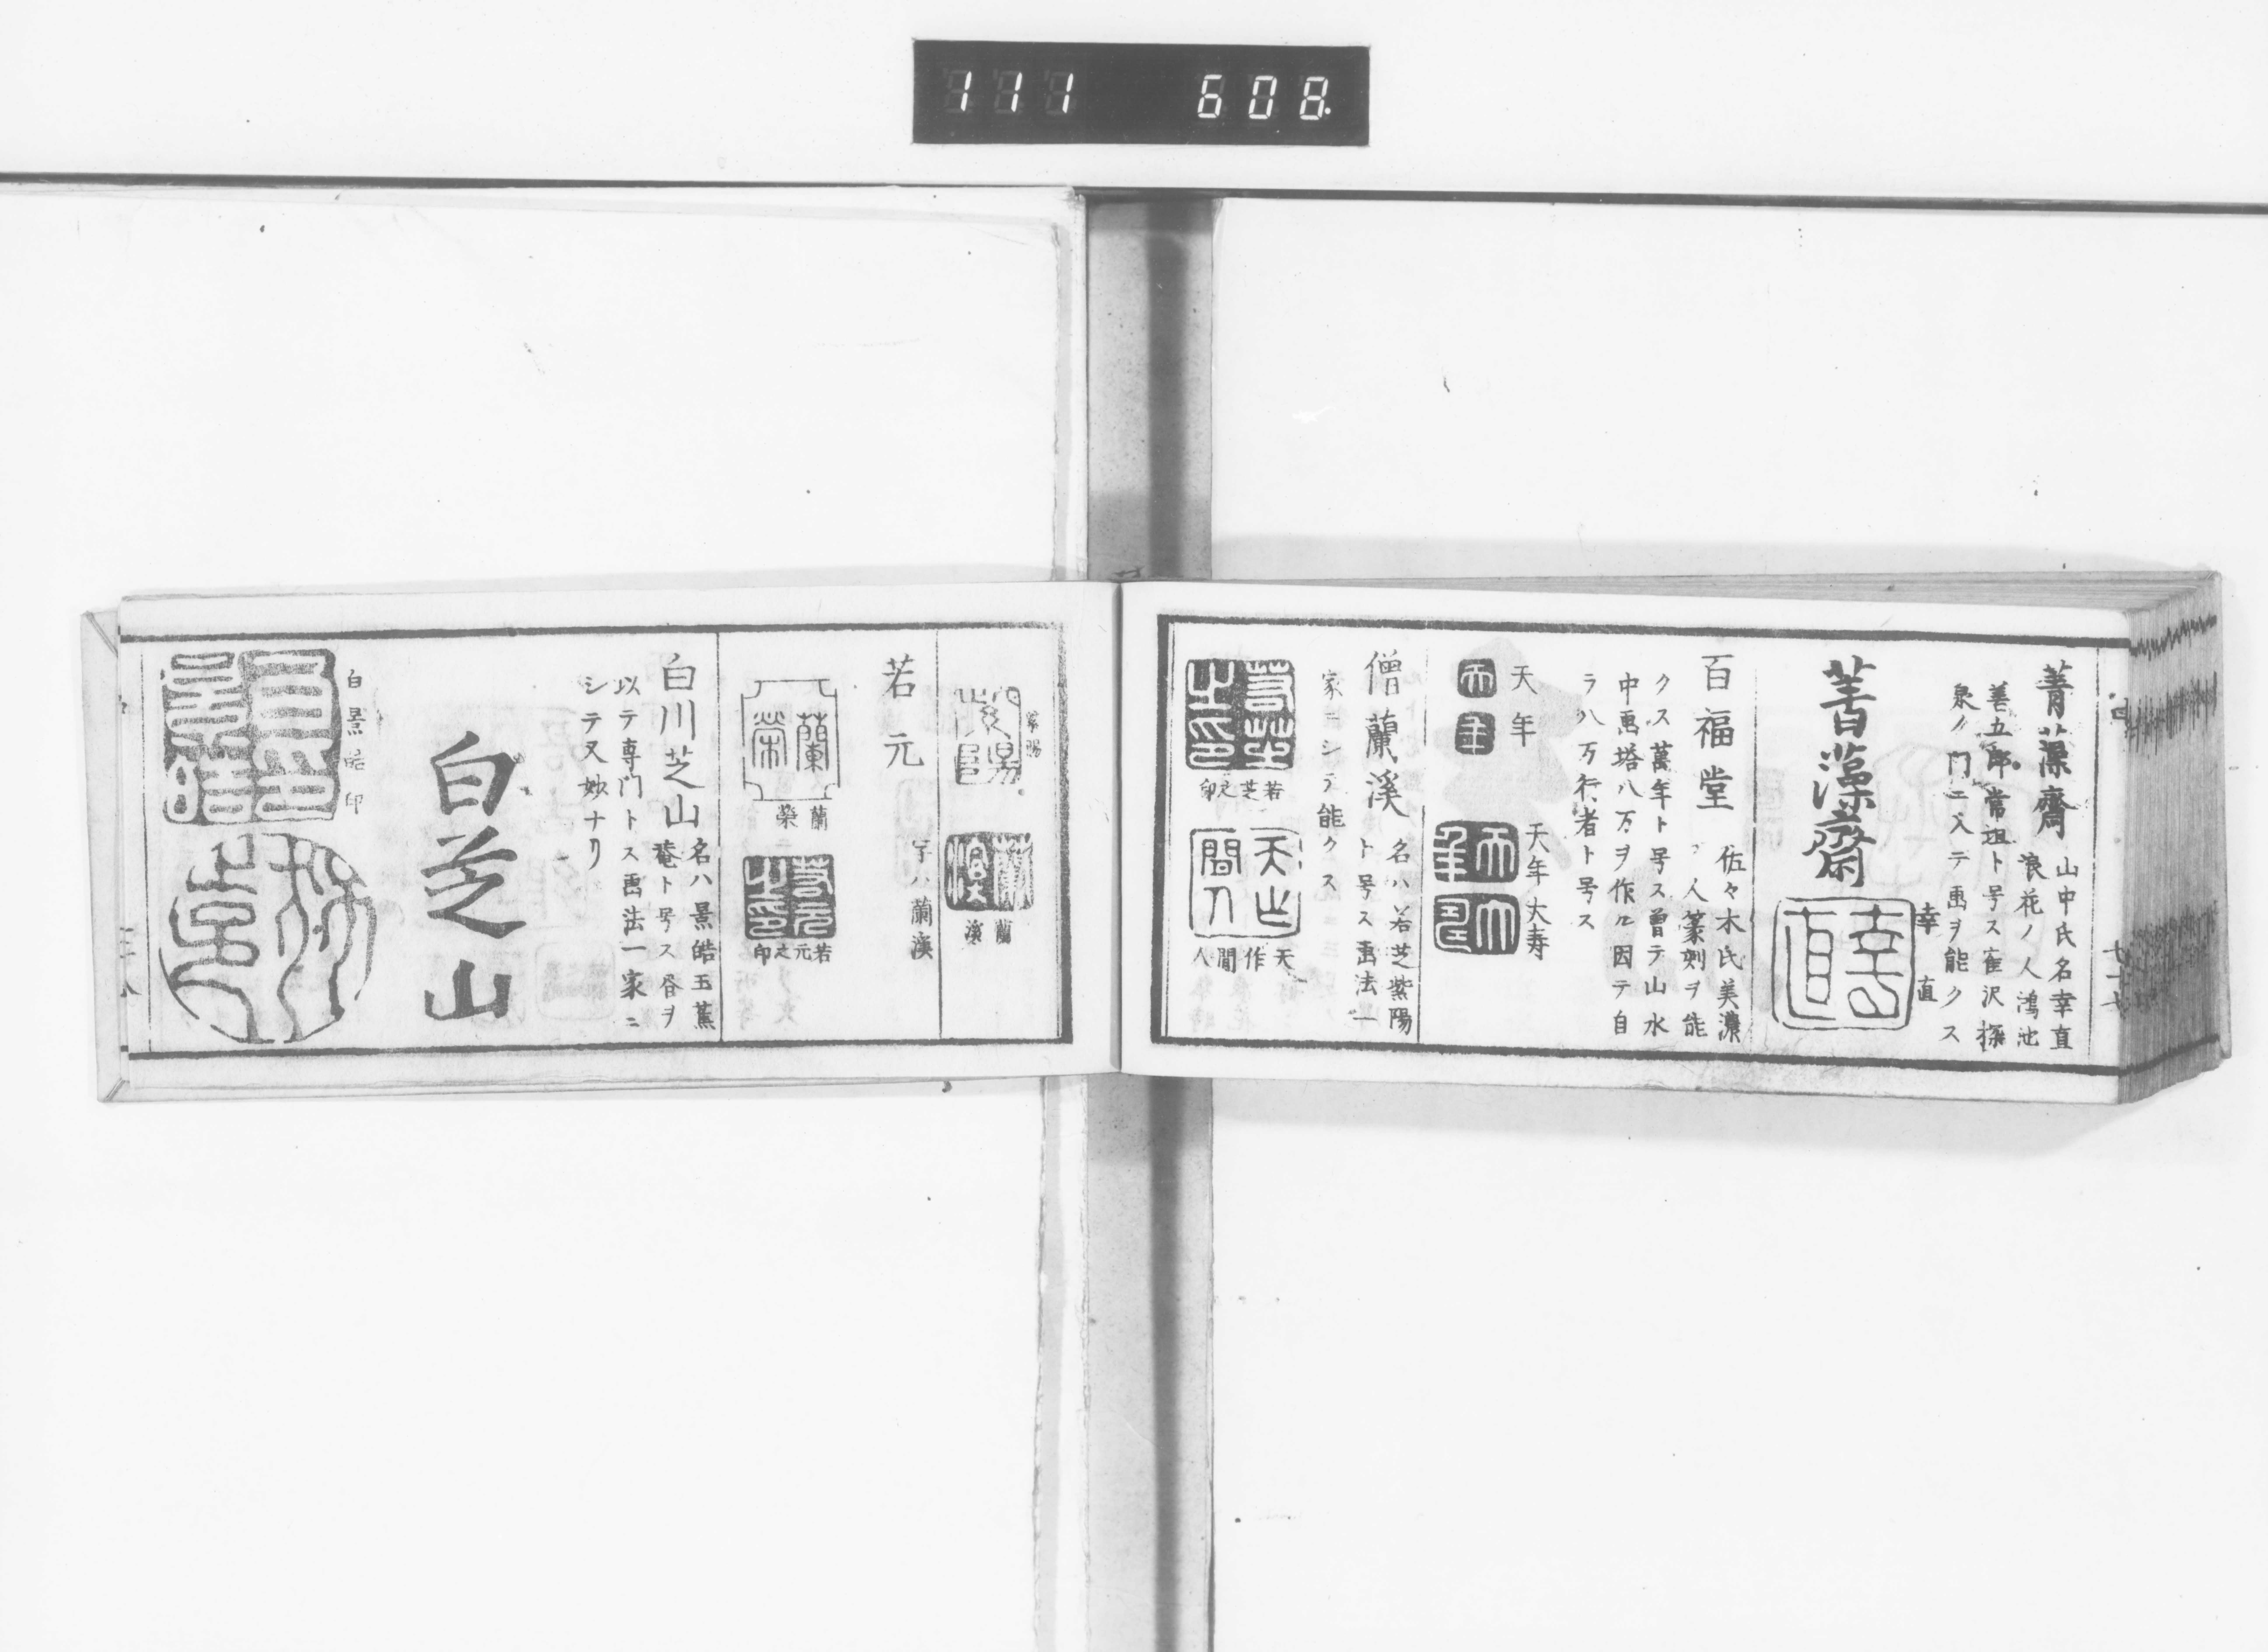 111 608.
菁藻齋
山中氏名幸直
浪花ノ人鴻池
善五郎常祖ト号ス
泉ノ門ニ入テ画ヲ能クス
菁藻齋
幸直
百福堂
佐々木氏美濃
ノ人篆刻ヲ能
クス萬年ト号ス曽テ山水
中画塔八万ヲ作ル因テ自
ラ八万行者ト号ス
天年
天年大寿
僧蘭溪
名ハ若芝紫陽
ト号ス画法一
家ニシテ能クス
若芝之印
天作間人
紫陽
蘭溪
若元
字ハ蘭溪
蘭榮
若元之印
白川芝山
名ハ景皓玉蕉
菴ト号ス唇ヲ
以テ専門トス画法一家ニ
シテ又妙ナリ
白芝山
白景皓印